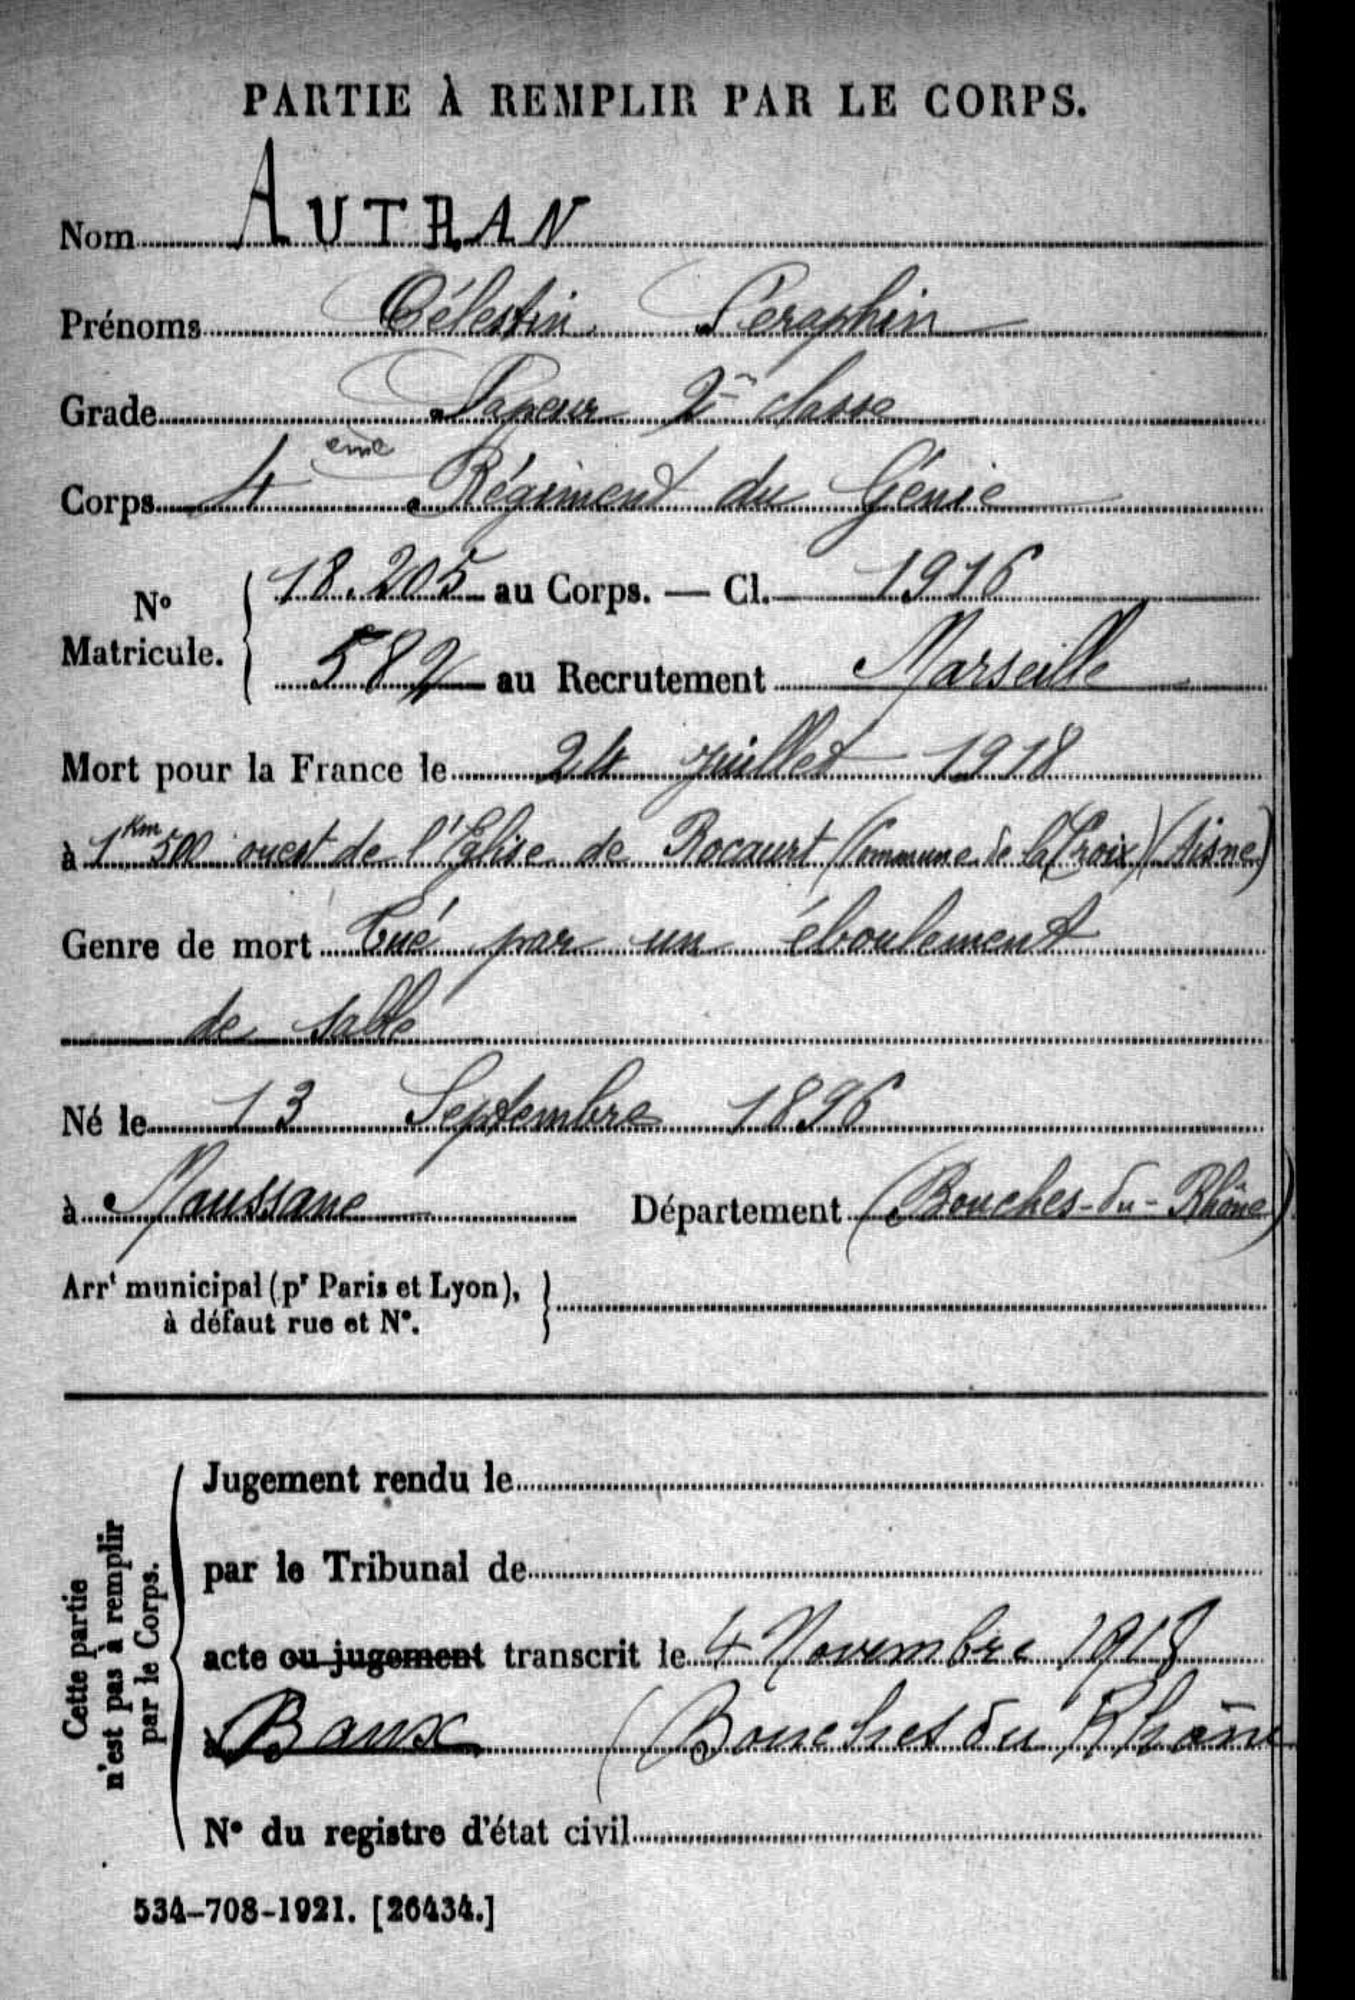 PARTIE À REMPLIR PAR LE CORPS.
Nom AUTRAN
Prénoms Célestin Séraphin
Grade Sapeur 2e classe
Corps 4ème Régiment du Génie
No Matricule. { 18.205 au Corps. — Cl. 1916
582 au Recrutement Marseille
Mort pour la France le 24 juillet 1918
à 1 Km 500 ouest de l'Eglise de Rocourt (Commune de la Croix) (Aisne)
Genre de mort Tué par un éboulement
de sable
Né le 13 Septembre 1896
à Maussane Département (Bouches-du-Rhône)
Arrt municipal (pr Paris et Lyon), }
à défaut rue et No.
Cette partie
n'est pas à remplir
par le Corps.
Jugement rendu le
par le Tribunal de
acte ou jugement transcrit le 4 Novembre 1918
à Baux (Bouches du Rhône
No du registre d'état civil
534-708-1921. [26434.]